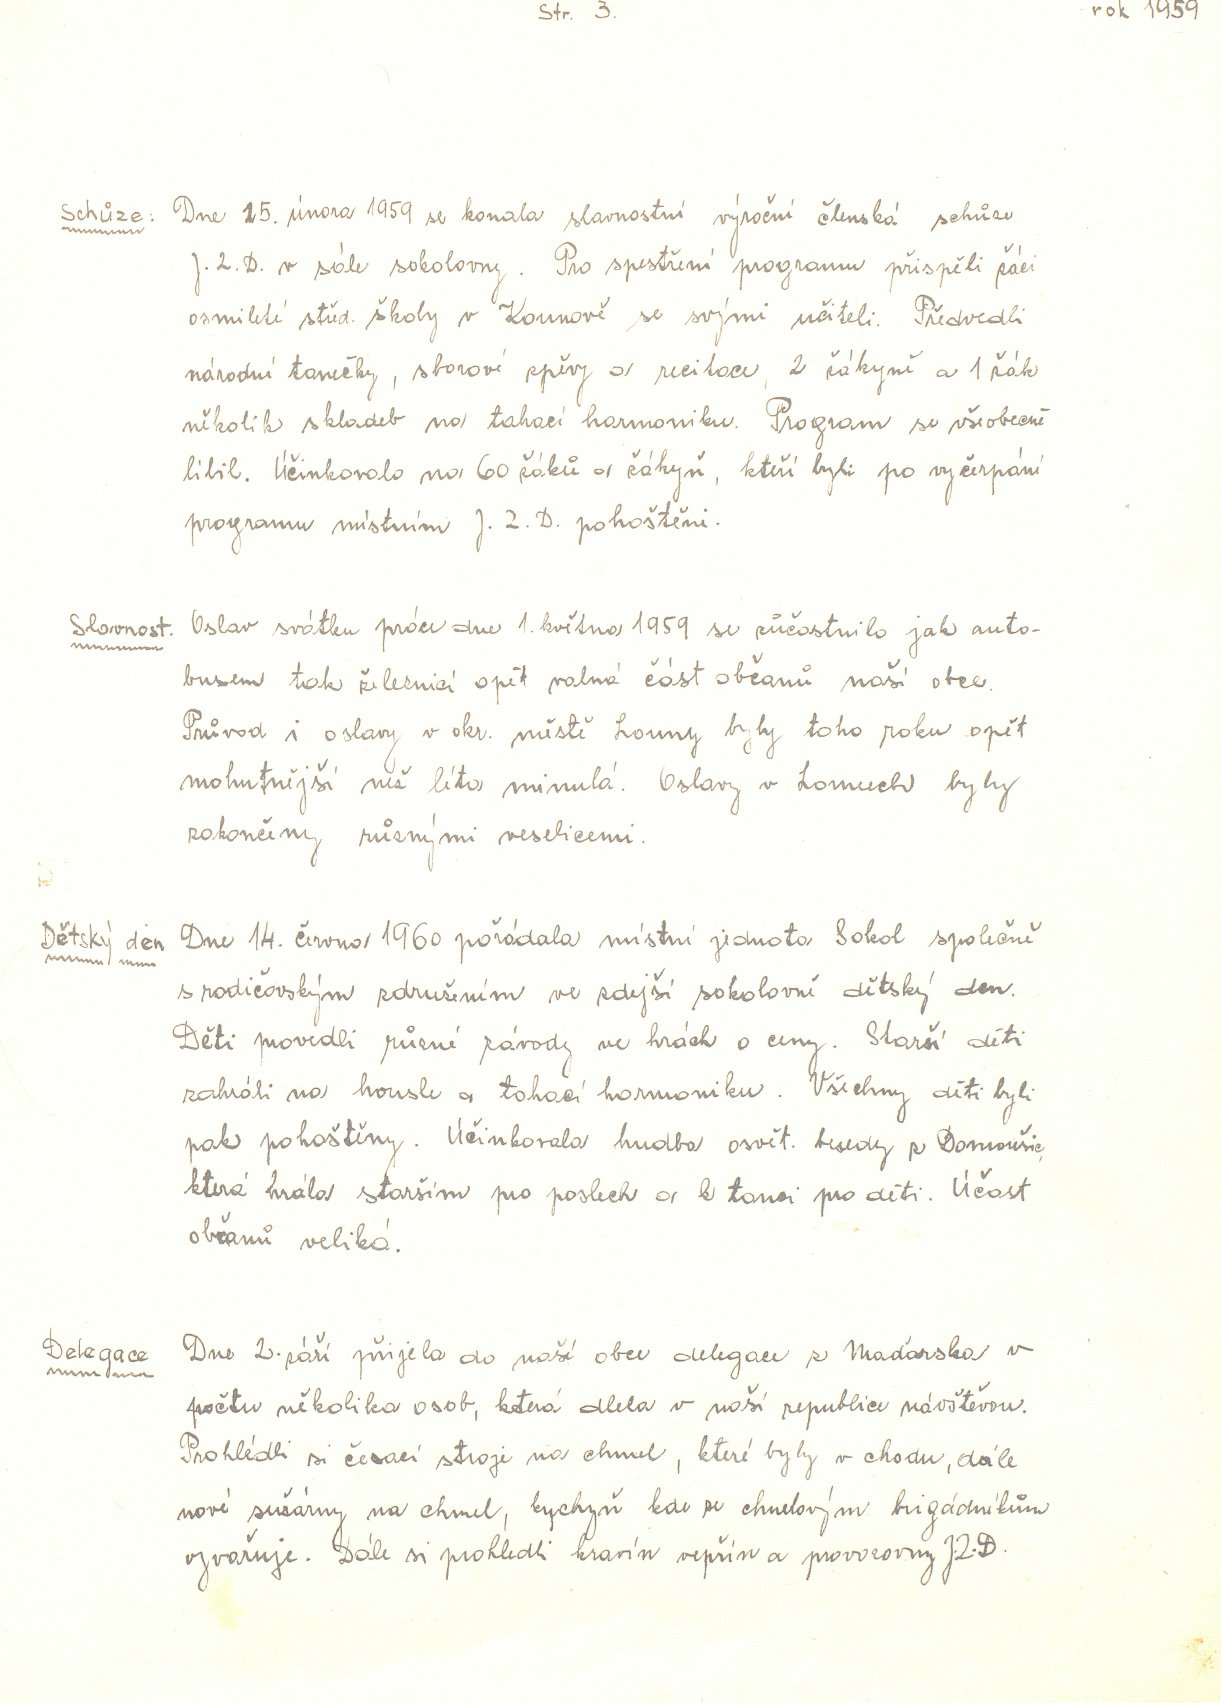 Str. 3.
rok 1959
Schůze: Dne 15. února 1959 se konala slavnostní výroční členská schůze
J.Z.D. v sále sokolovny. Pro spestření programu přispěli žáci
osmileté střed. školy v Kounově se svými učiteli. Předvedli
národní tanečky, sborové zpěvy a recitace, 2 žákyně a 1 žák
několik skladeb na tahací harmoniku. Program se všeobecně
líbil. Účinkovalo na 60 žáků a žákyň, kteří byli po vyčerpání
programu místním J.Z.D. pohoštěni.
Slavnost. Oslav svátku práce dne 1. května 1959 se zúčastnilo jak auto-
busem tak železnicí opět valná část občanů naší obce.
Průvod i oslavy v okr. městě Louny byly toho roku opět
mohutnější než léta minulá. Oslavy v Lounech byly
zakončeny různými veselicemi.
Dětský den Dne 14. června 1960 pořádala místní jednota Sokol společně
s rodičovským združením ve zdejší sokolovně dětský den.
Děti provedli různé závody ve hrách o ceny. Starší děti
zahráli na housle a tahací harmoniku. Všechny děti byli
pak pohoštěny. Účinkovala hudba osvět. besedy z Domoušic,
která hrála starším pro poslech a k tanci pro děti. Účast
občanů veliká.
Delegace Dne 2. září přijela do naší obce delegace z Maďarska v
počtu několika osob, která dlela v naší republice návštěvou.
Prohlédli si česací stroje na chmel, které byly v chodu, dále
nové sušárny na chmel, kychyň kde se chmelovým brigádníkům
vyvařuje. Dále si prohledli kravín vepřín a provozovny J.Z.D.